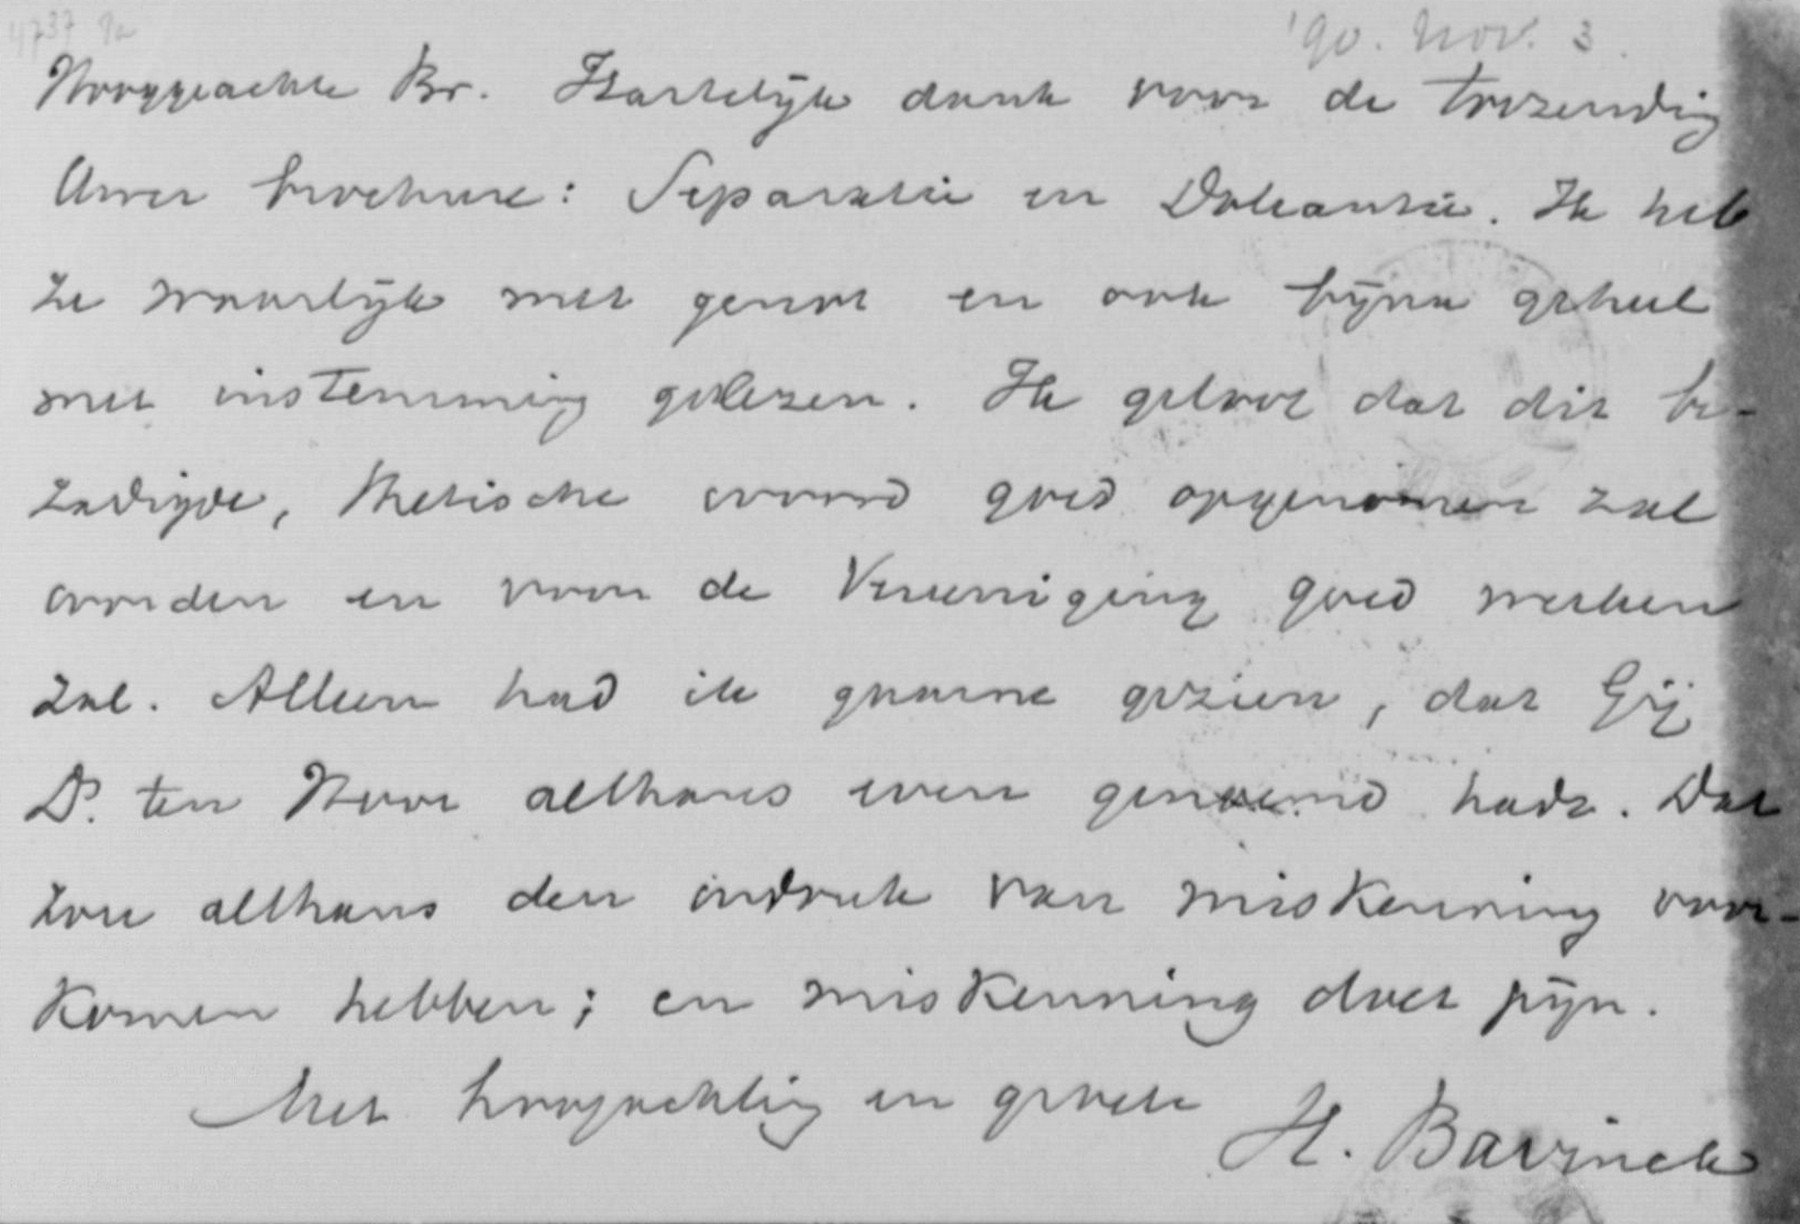 '90. Nov. 3.
Hooggeachte Br. Hartelijk dank voor de toezending
Uwer brochure: Separatie en Doleantie. Ik heb
ze waarlijk met genot en ook bijna geheel
met instemming gelezen. Ik geloof dat dit be-
zadigde, thetische woord goed opgenomen zal
worden en voor de Vereeniging goed werken
zal. Alleen had ik gaarne gezien, dat Gij
Ds. ten Hoor althans even genoemd hadt. Dat
zou althans den indruk van miskenning voor-
komen hebben; en miskenning doet pijn.
Met hoogachting en groete H. Bavinck